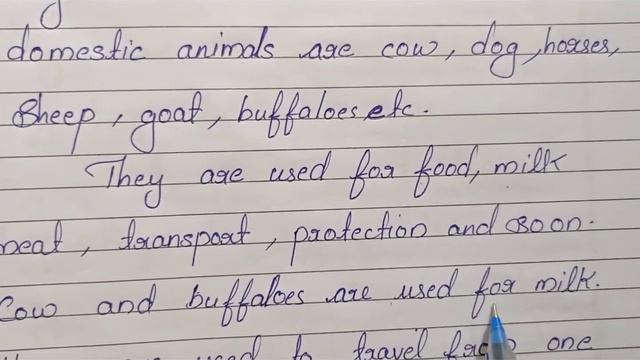 domestic animals are cow, dog, horses,
Sheep, goat, buffaloes etc.
They are used for food, milk
meat, transport, protection and soon.
Cow and buffaloes are used for milk.
used to travel from one